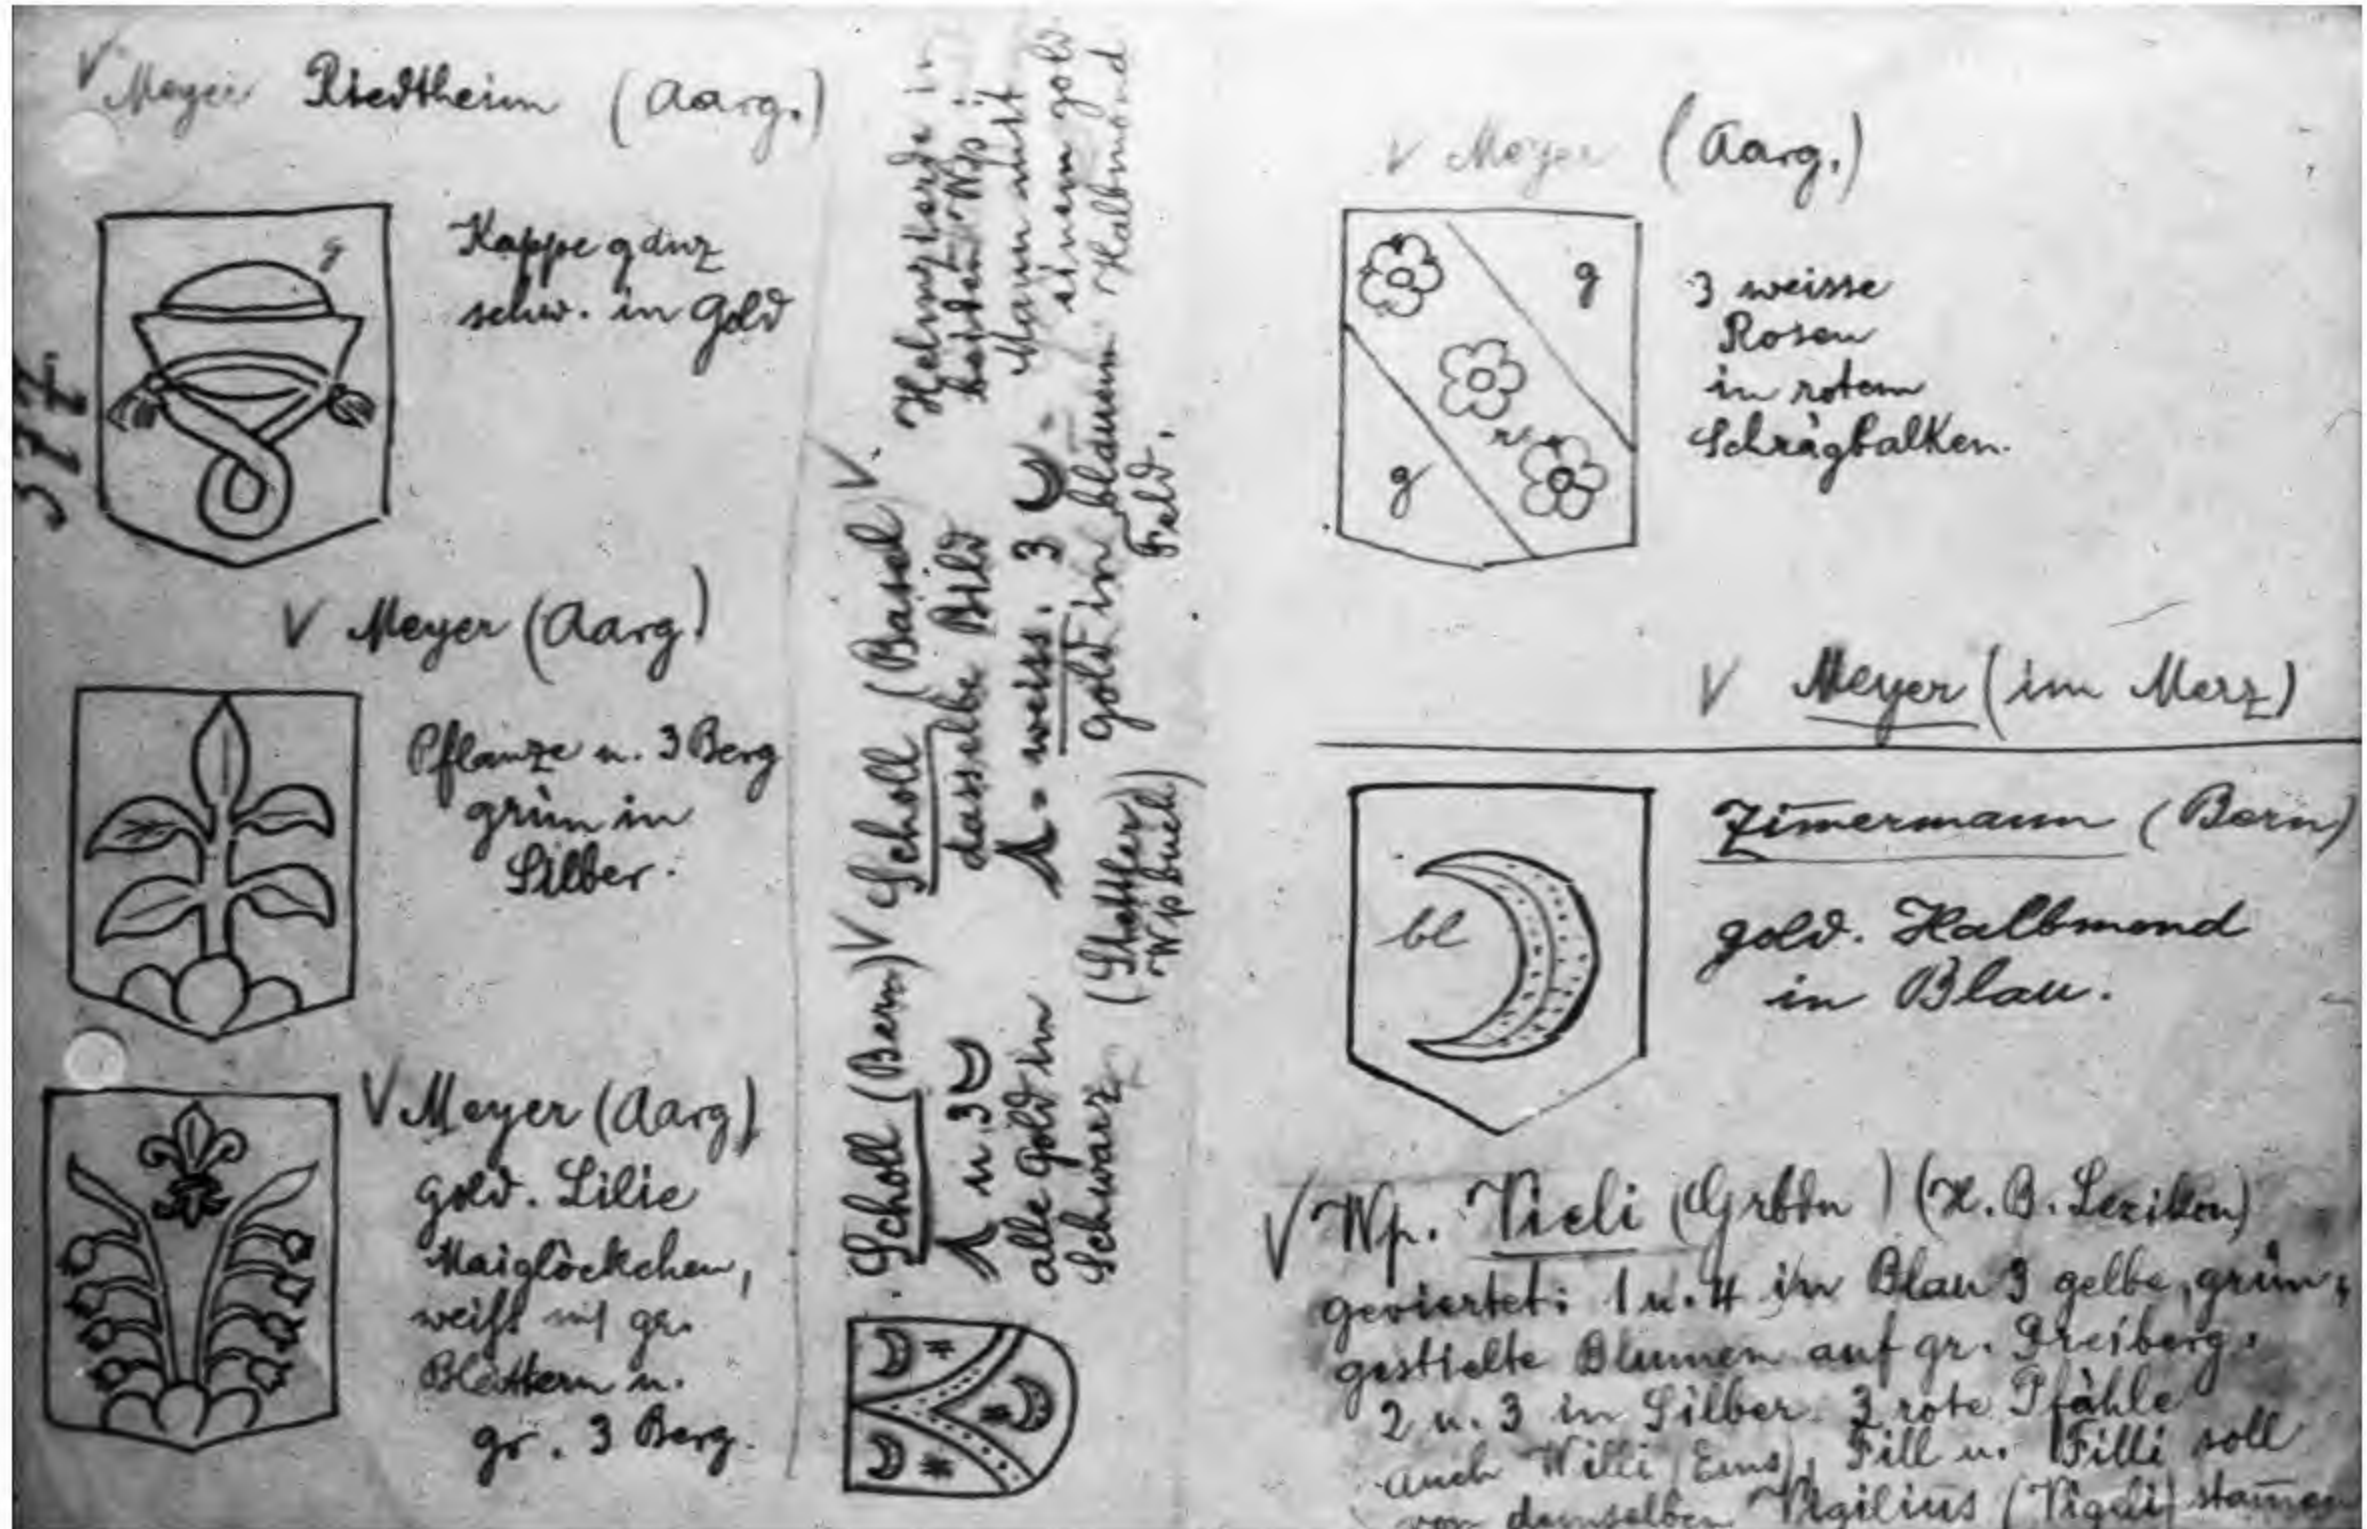 V Meyer Riedtheim (Aarg.)
g
Kappe ganz
schw. in Gold
377
V Meyer (Aarg)
Pflanze u. 3 Berg
grün in
Silber.
V Meyer (Aarg)
gold. Lilie
Maiglöckchen,
weiss mit gr.
Blättern u.
gr. 3 Berg.
Scholl (Bern) V
u. 3
alle gold in
Schwarz
V Scholl (Basel V.
dasselbe Bild
= weiss. 3
gold in blauem
Feld.
(Stettler
Wp buch)
beiden Wp:
Mann mit
einem gold
Halbmond
V Meyer (Aarg.)
g
g
r
3 weisse
Rosen
in rotem
Schrägbalken.
V Meyer (im Merz)
bl
Zim̄ermann (Bern)
gold. Halbmond
in Blau.
V Wp. Vieli (Grbdn) (H. B. Lexikon)
geviertet: 1 u. 4 in Blau 3 gelbe, grün,
gestielte Blumen auf gr. Dreiberg.
2 u. 3 in Silber 3 rote Pfähle
auch Willi (Ems), Fill u. Filli soll
von demselben Vigilius (Vigeli) stam̄en